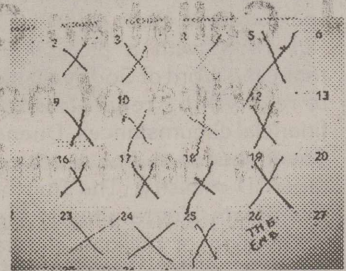 2 3 4 5 6
9 10 12 13
16 17 18 19 20
23 24 25 26 27
THE
END